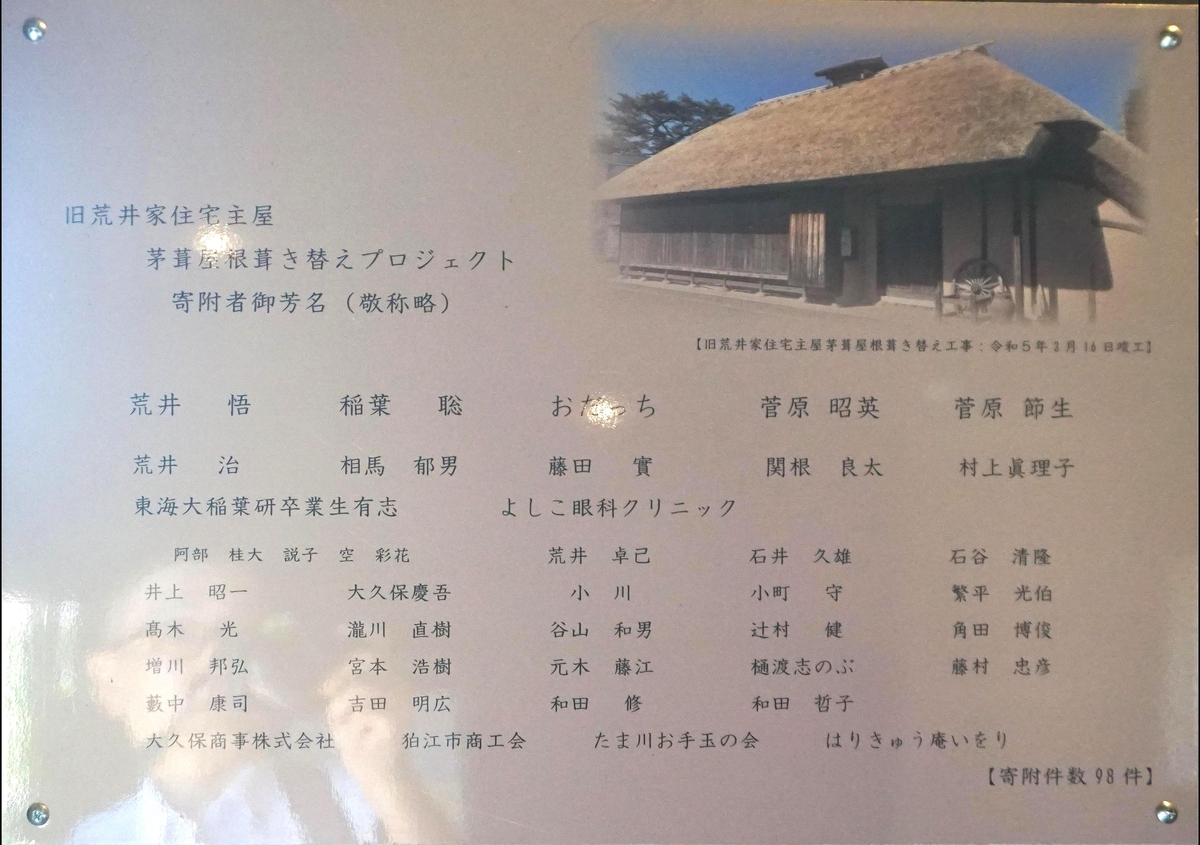 旧荒井家住宅主屋
茅葺屋根葺き替えプロジェクト
寄附者御芳名(敬称略)
【旧荒井家住宅主屋茅葺屋根葺き替え工事:令和5年3月16日竣工】
荒井 悟 稲葉 聡 おだっち 菅原 昭英 菅原 節生
荒井 治 相馬 郁男 藤田 實 関根 良太 村上眞理子
東海大稲葉研卒業生有志 よしこ眼科クリニック
阿部 桂大 説子 空 彩花 荒井 卓己 石井 久雄 石谷 清隆
井上 昭一 大久保慶吾 小川 小町 守 繁平 光伯
髙木 光 瀧川 直樹 谷山 和男 辻村 健 角田 博俊
増川 邦弘 宮本 浩樹 元木 藤江 樋渡志のぶ 藤村 忠彦
藪中 康司 吉田 明広 和田 修 和田 哲子
大久保商事株式会社 狛江市商工会 たま川お手玉の会 はりきゅう庵いをり
【寄附件数98件】